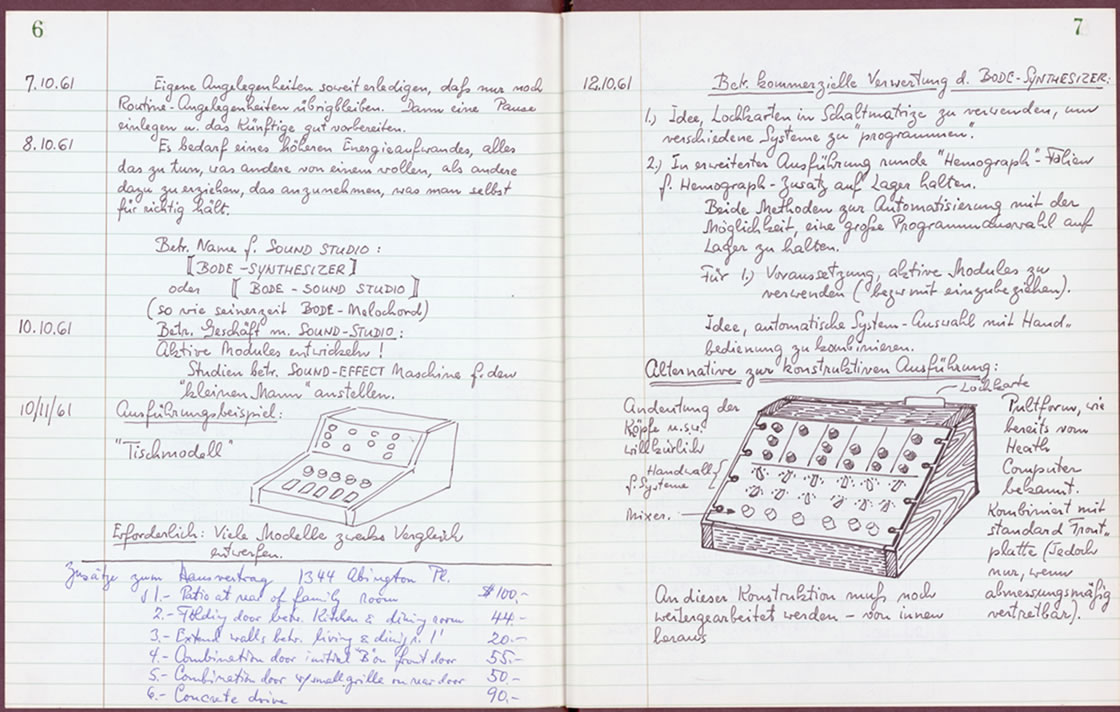 6
7.10.61 Eigene Angelegenheiten soweit erledigen, daß nur noch
Routine-Angelegenheiten übrigbleiben. Dann eine Pause
einlegen u. das Künftige gut vorbereiten.
8.10.61 Es bedarf eines höheren Energieaufwandes, alles
das zu tun, was andere von einem wollen, als andere
dazu zu erziehen, das anzunehmen, was man selbst
für richtig hält.
Betr. Name f. SOUND STUDIO:
[BODE-SYNTHESIZER]
oder [BODE-SOUND STUDIO]
(so wie seinerzeit BODE-Melochord)
10.10.61 Betr. Geschäft m. SOUND-STUDIO:
Aktive Modules entwickeln!
Studien betr. SOUND-EFFECT Maschine f. den
"kleinen Mann" anstellen.
10/11/61 Ausführungsbeispiel:
"Tischmodell"
Erforderlich: Viele Modelle zwecks Vergleich
entwerfen.
Zusätze zum Hausvertrag 1344 Abington Pl.
1.- Patio at rear of family room $100,-
2.- Folding door betw. Kitchen & dining room 44-
3.- Extend walls betw. living & dining r. 1' 20.-
4.- Combination door initial "B" on front door 55.-
5.- Combination door w/small grille on rear door 50.-
6.- Concrete drive 90,-
7
12.10.61 Betr. kommerzielle Verwertung d. BODE-SYNTHESIZER:
1.) Idee, Lochkarten in Schaltmatrize zu verwenden, um
verschiedene Systeme zu "programmen".
2.) In erweiterter Ausführung runde "Hemograph"-Folien
f. Hemograph-Zusatz auf Lager halten.
Beide Methoden zur Automatisierung mit der
Möglichkeit, eine große Programmauswahl auf
Lager zu halten.
Für 1.) Voraussetzung, aktive Modules zu
verwenden (bezw mit einzubeziehen).
Idee, automatische System-Auswahl mit Hand-
bedienung zu kombinieren.
Alternative zur konstruktiven Ausführung:
Lochkarte
Andeutung der
Köpfe u.s.w.
willkürlich
Handwahl
f. Systeme
Mixer.
Pultform, wie
bereits vom
Heath
Computer
bekannt.
Kombiniert mit
standard Front-
platte (Jedoch
nur, wenn
abmessungsmäßig
vertretbar).
An dieser Konstruktion muß noch
weitergearbeitet werden – von innen
heraus